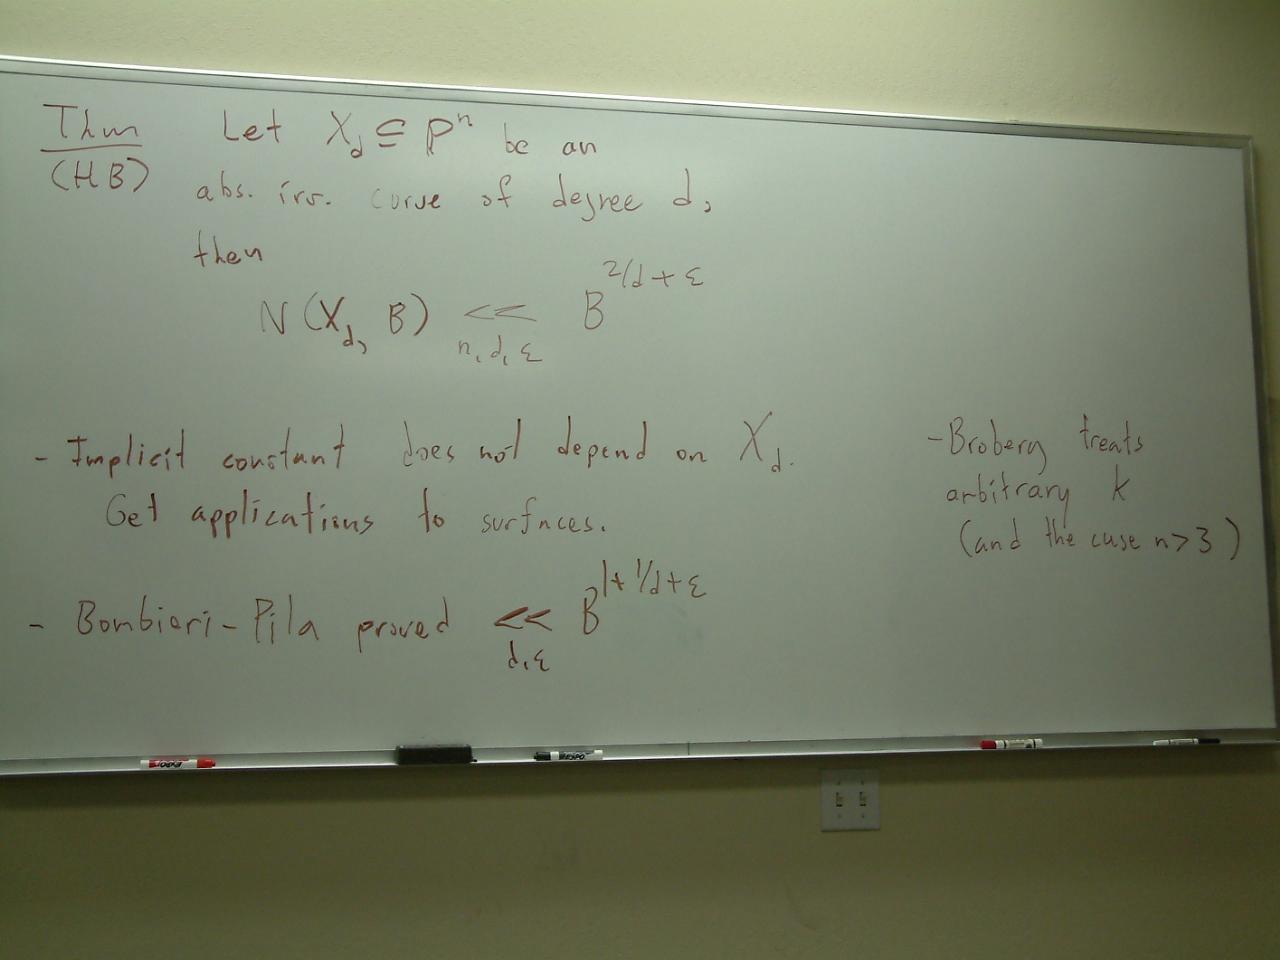 Thm Let X_d ⊆ P^n be an
(HB) abs. irr. curve of degree d,
then
N(X_d, B) <<_{n, d, ε} B^{2/d + ε}
- Implicit constant does not depend on X_d.
Get applications to surfaces.
- Bombieri-Pila proved <<_{d, ε} B^{1 + 1/d + ε}
- Broberg treats
arbitrary k
(and the case n > 3)
EXPO
EXPO